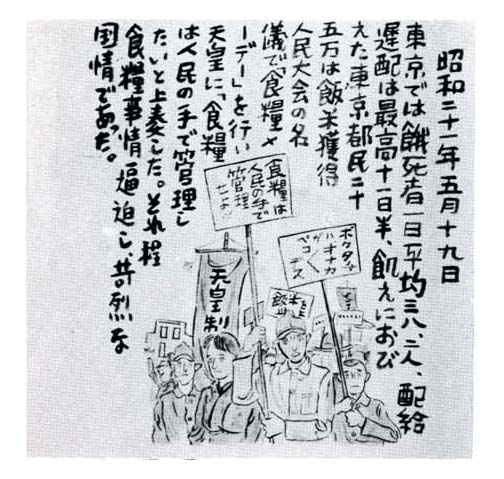 昭和二十一年五月十九日
東京では餓死者一日平均三八、二人、配給
遅配は最高十一日半、飢えにおび
えた東京都民二十
五万は飯米獲得
人民大会の名
儀で「食糧メ
ーデー」を行い
天皇に、食糧
は人民の手で管理し
たいと上奏した。それ程
食糧事情逼迫し、苛烈な
国情であった。
食糧は
人民の手で
管理
せよ!!
ボクタチハ
オナカ
ガ
ペコペコ
デス
天皇制